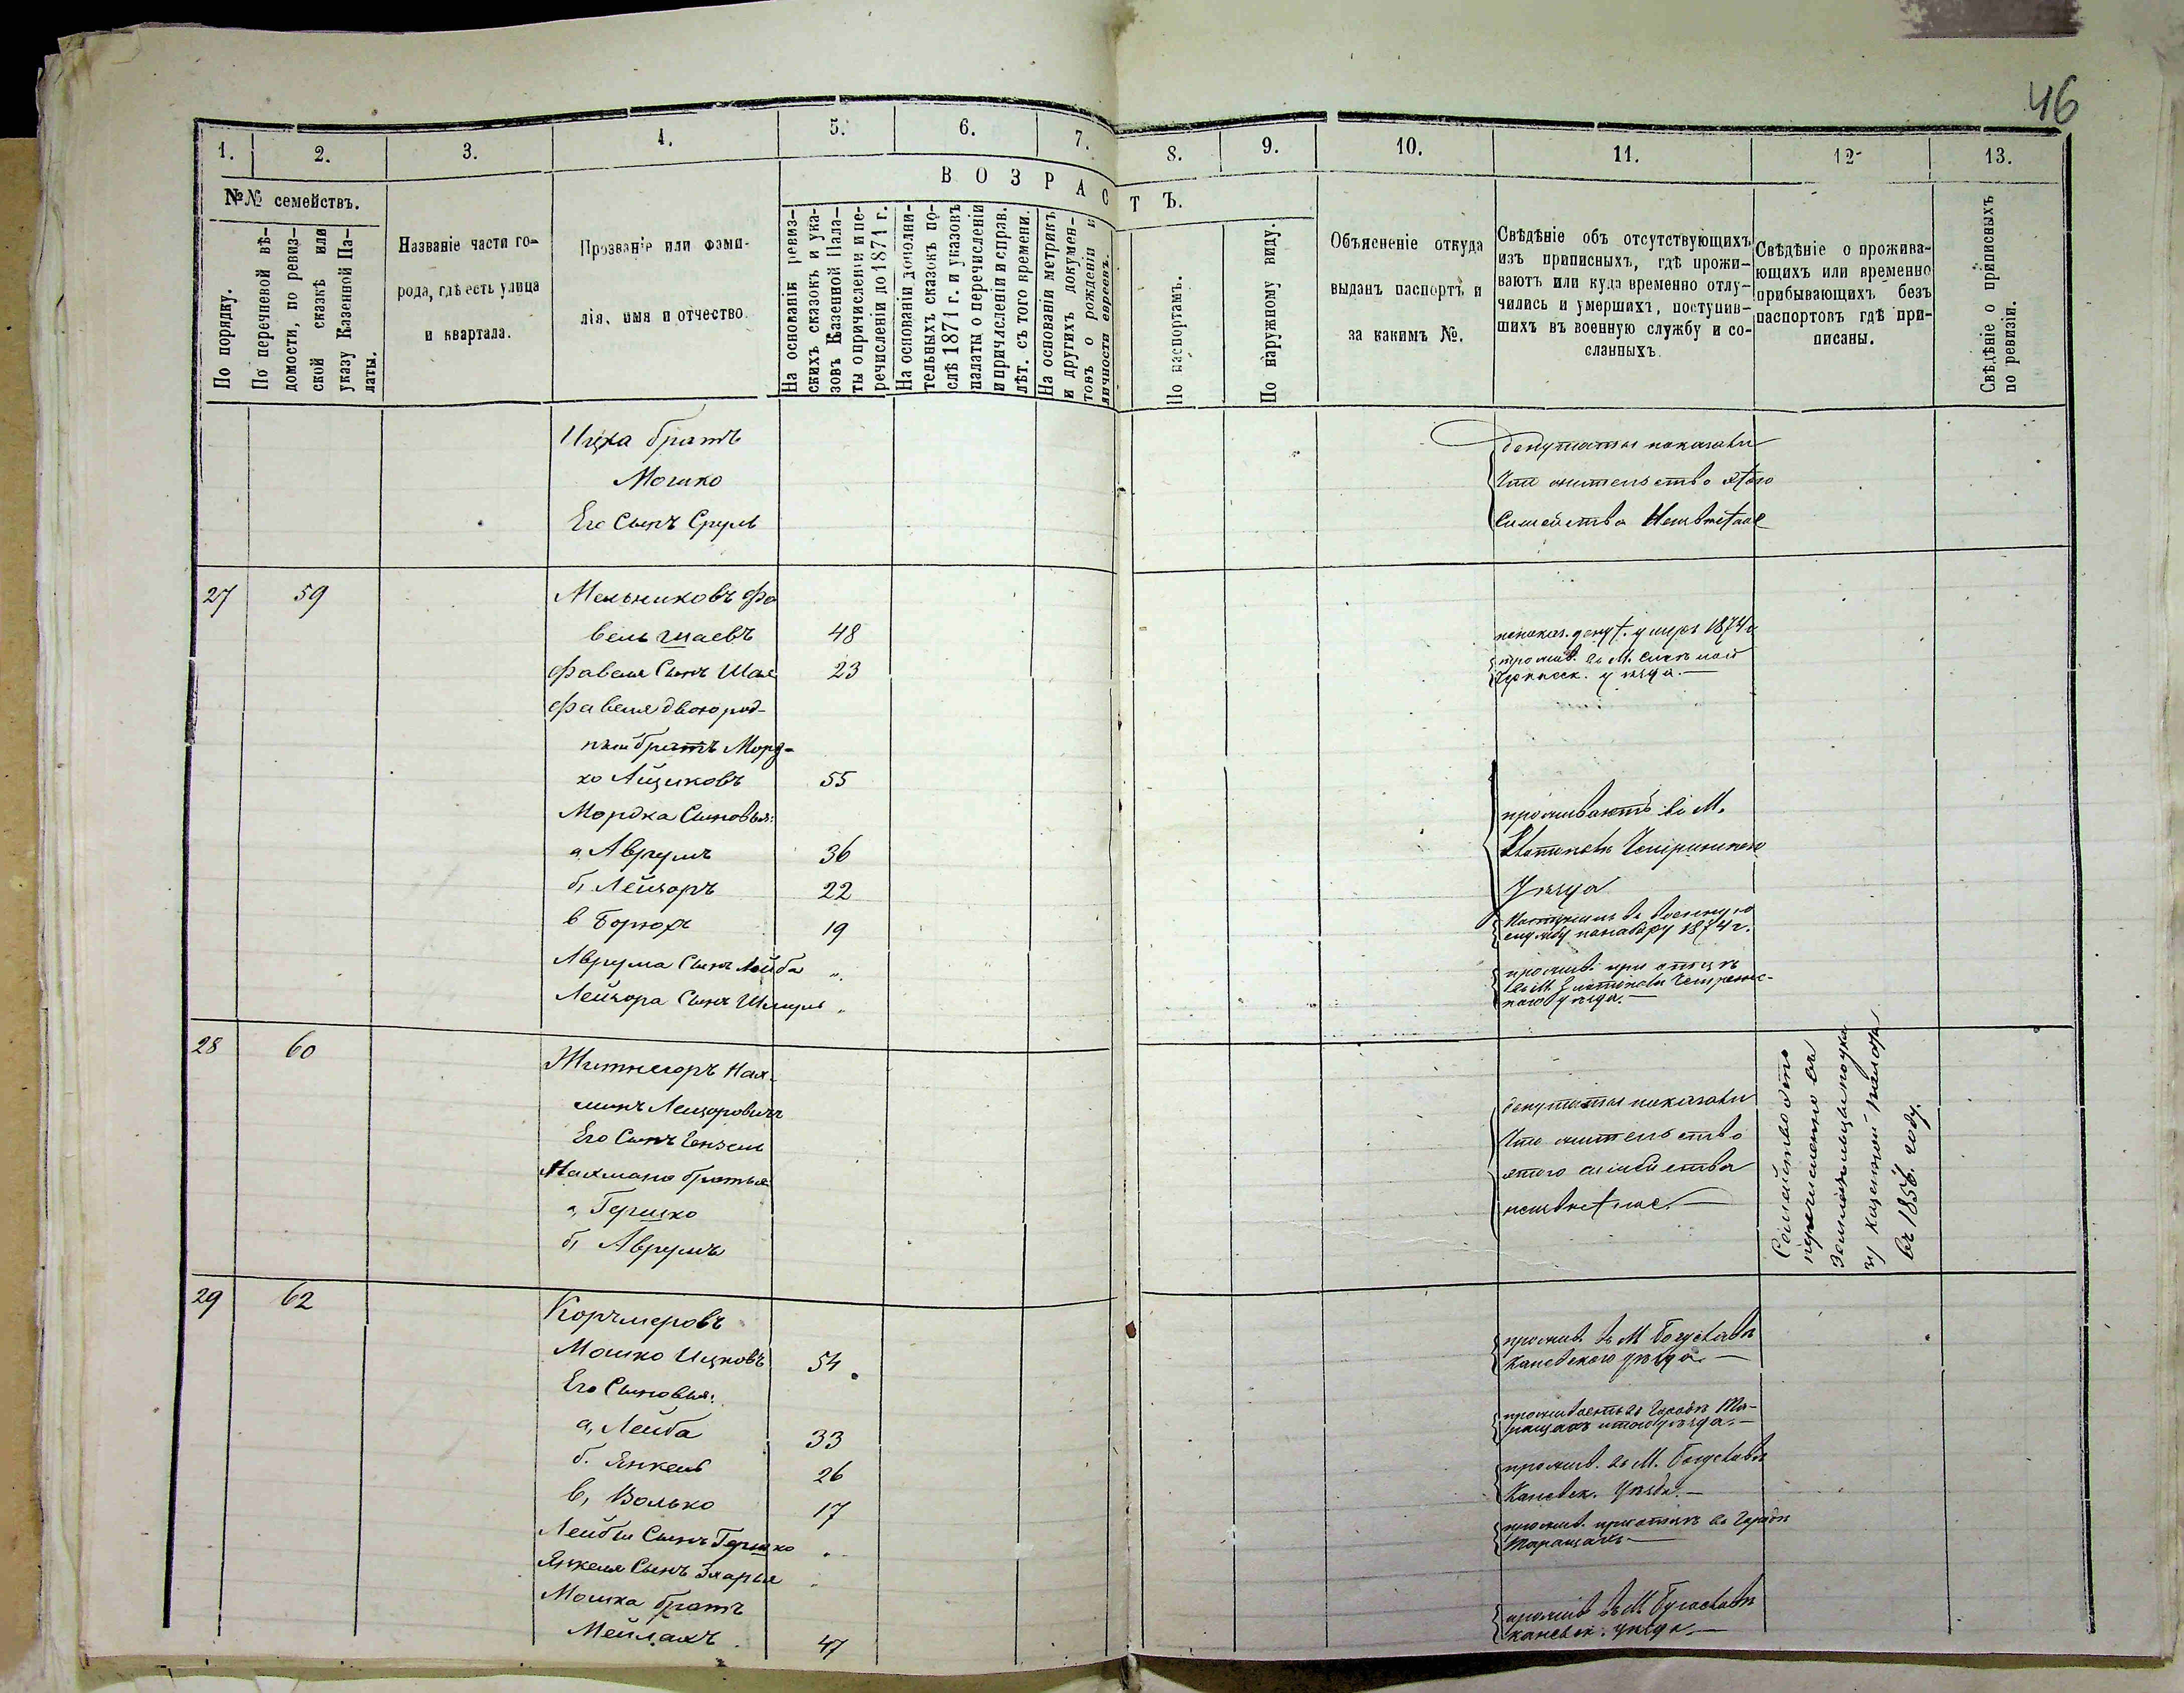 46
1. 2. 3. 4. 5. 6. 7. 8. 9. 10. 11. 12 13.
№№ семействъ.
ВОЗРАСТЪ.
По порядку.
По перечневой вѣ-
домости, по ревиз-
ской сказкѣ или
указу Казенной Па-
латы.
Названіе части го-
рода, гдѣ есть улица
и квартала.
Прозваніе или фами-
лія, имя и отчество
На основаніи ревиз-
скихъ сказокъ и ука-
зовъ Казенной Пала-
ты о причисленіи и пе-
речисленіи до 1871 г.
На основаніи дополни-
тельныхъ сказокъ по-
слѣ 1871 г. и указовъ
палаты о перечисленіи
и причисленіи и справ.
лѣт. съ того времени.
На основаніи метрикъ
и другихъ докумен-
товъ о рожденіи и
личности евреевъ.
По паспортамъ.
По наружному виду.
Объясненіе откуда
выданъ паспортъ и
за какимъ №.
Свѣдѣніе объ отсутствующихъ
изъ приписныхъ, гдѣ прожи-
ваютъ или куда временно отлу-
чились и умершихъ, поступив-
шихъ въ военную службу и со-
сланныхъ.
Свѣдѣніе о прожива-
ющихъ или временно
прибывающихъ безъ
паспортовъ гдѣ при-
писаны.
Свѣдѣніе о приписныхъ
по ревизіи.
Ицка братъ
Мошко
Его Сынъ Сруль
депутаты показали
Что жительство этого
Семейства Неизвѣстное
27 59 Мельниковъ Фа
вель Шаевъ 48
показ. депут. умеръ 1874 г
Фавеля Сынъ Шая 23
прожив. въ М.
уѣзда.
Фавеля двоюрод-
ный братъ Морд-
ко Айзиковъ 55
Мордка Сыновья:
а, Аврумъ 36
б, Лейзоръ 22
в Борюхъ 19
проживаютъ въ М.
Златополѣ Чегиринскаго
Уѣзда
Поступилъ въ военную
службу по набору 1874 г.
Аврума Сынъ Лейба "
Лейзора Сынъ Шмуль "
прожив. при отцѣ
въ М. Златополѣ Чегиринс-
каго уѣзда.
28 60 Житнегоръ Нах-
манъ Лейзоровичъ
Его Сынъ Гензель
Нахмана братья
а, Гершко
б, Аврумъ
депутаты показали
Что жительство
этого семейства
неизвѣстное.
Семейство это
перечислено въ
Земледѣльцы по ука-
зу Казенной палаты
въ 1856 году.
29 62 Корчмеровъ
Мошко Ицковъ 54
прожив. въ М Богуславѣ
Каневскаго уѣзда.
Его Сыновья:
а, Лейба 33
проживаетъ въ Городѣ Та-
ращахъ того уѣзда.
б. Янкель 26
прожив. въ М. Богуславѣ
Каневск. уѣзда.
в, Волько 17
Лейбы Сынъ Гершко "
прожив. при отцѣ въ Городѣ
Таращахъ
Янкеля Сынъ Зхарья "
Мошка братъ
Мейлахъ 47
прожив въ М Богуславѣ
каневск. уѣзда.